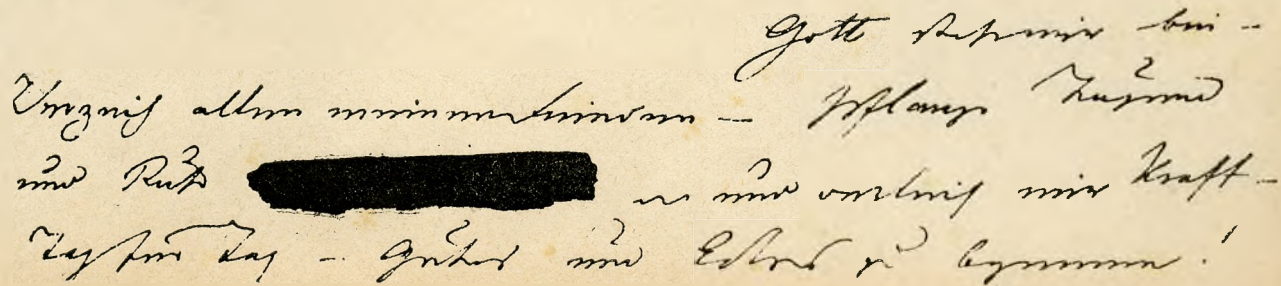 Gott steh mir bei –
Verzeih allen meinen Feinden – pflanze Tugend
und Ruhe in und verleih mir Kraft –
Tag für Tag – Gutes und Edles zu beginnen!